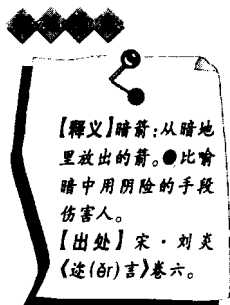 【释义】暗箭:从暗地
里放出的箭。●比喻
暗中用阴险的手段
伤害人。
【出处】宋·刘炎
《迩(ěr)言》卷六。